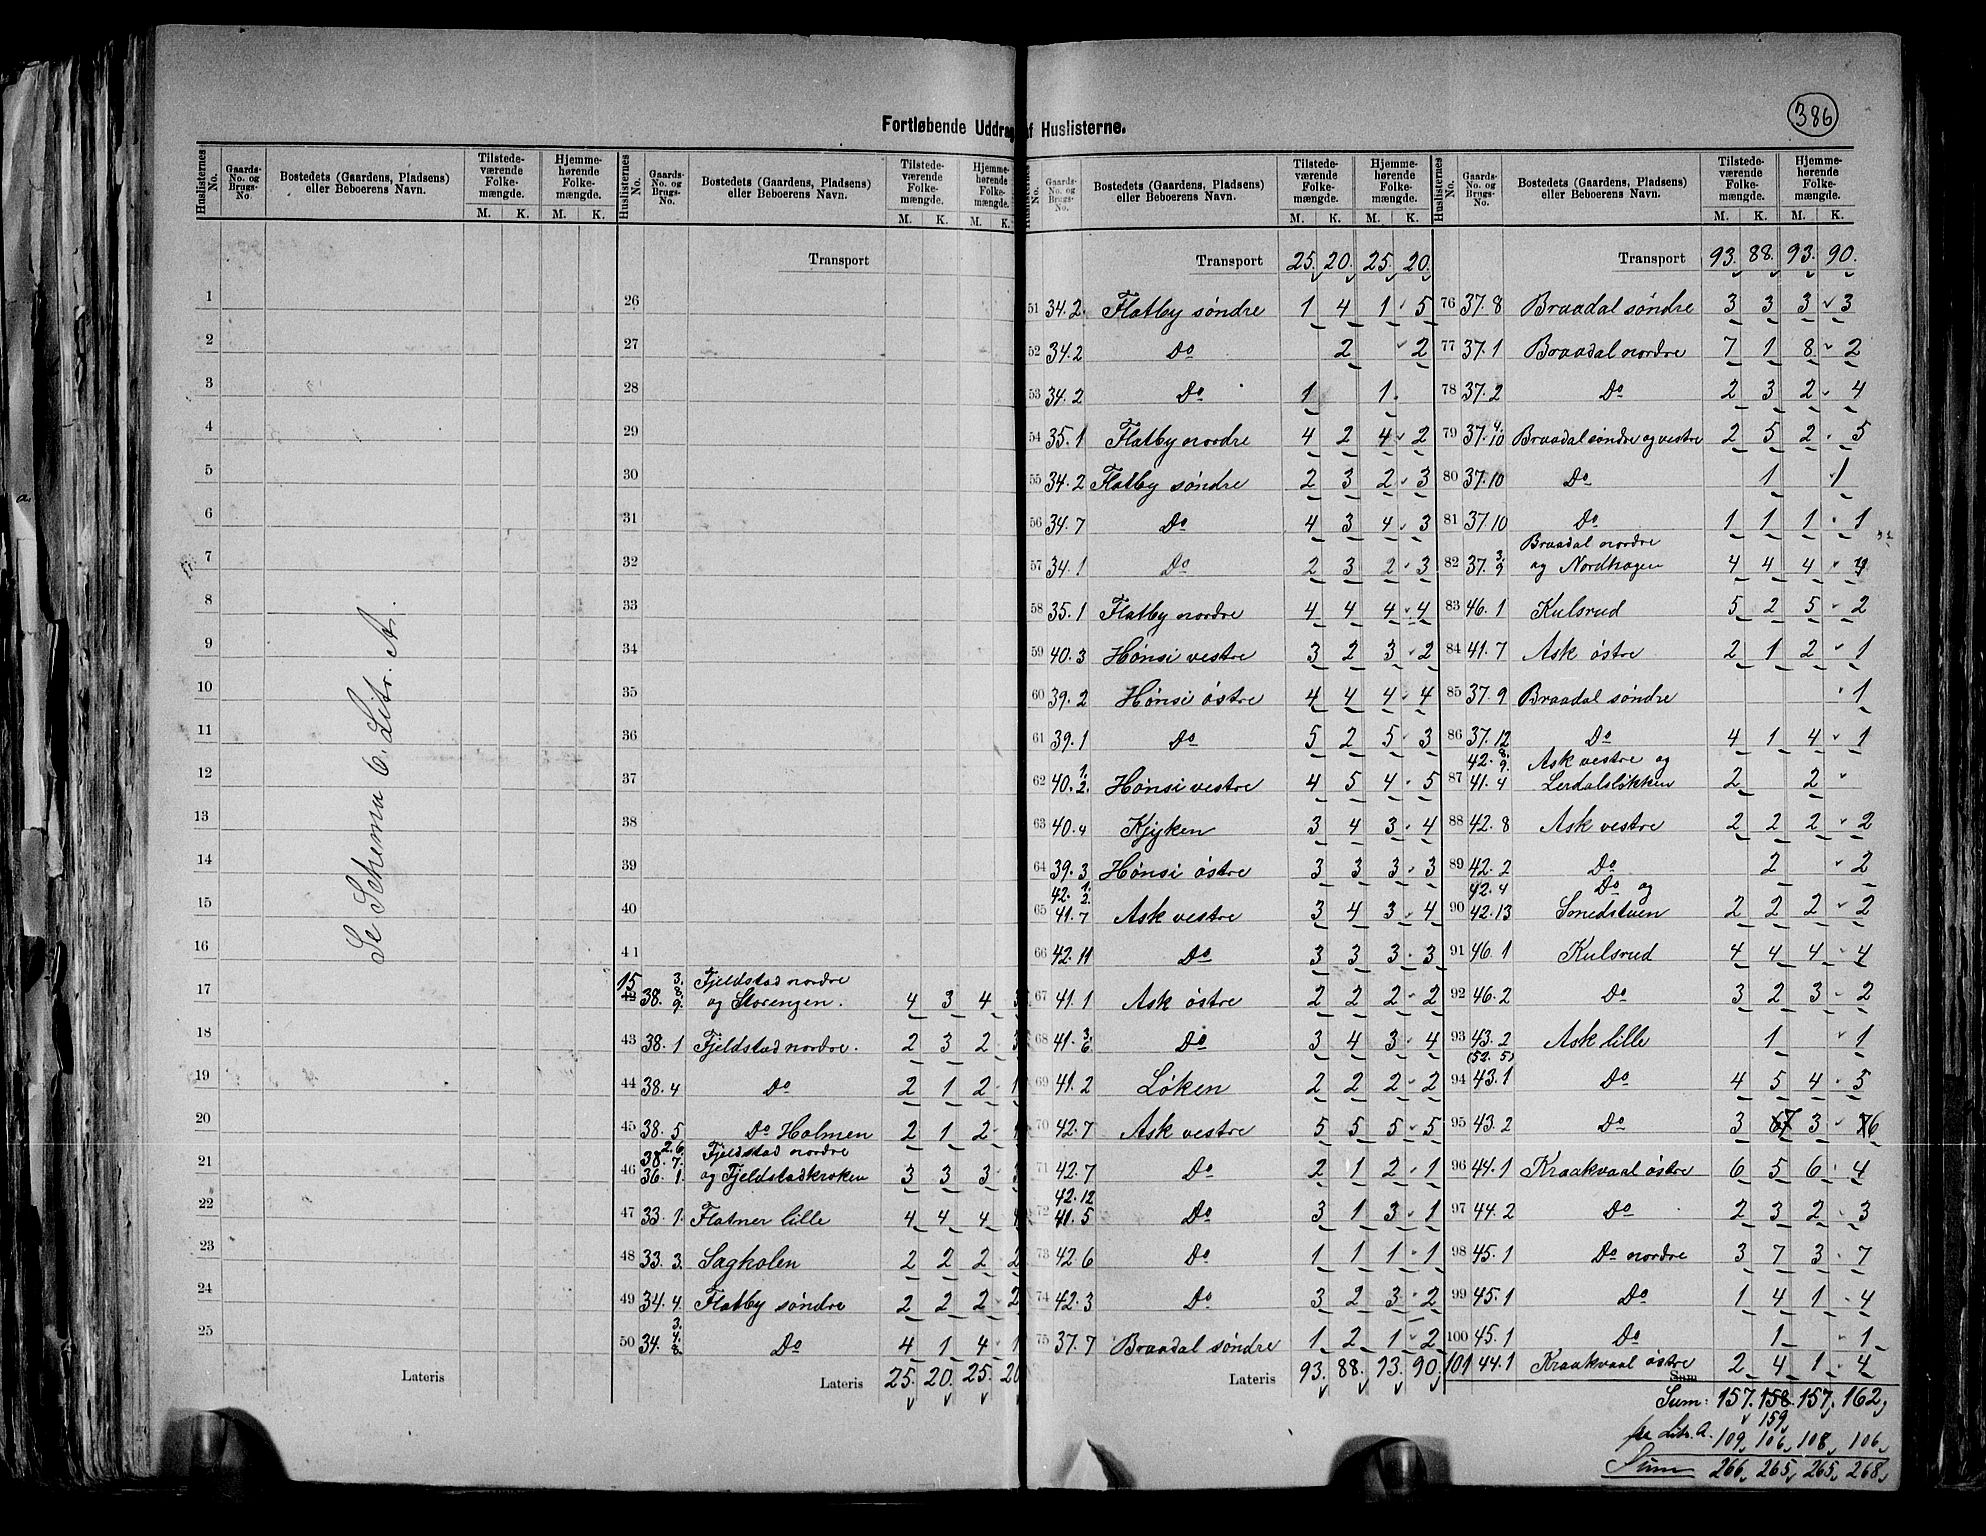 386
Fortløbende Uddrag af Huslisterne.
Huslisternes No. Gaards-No. og Brugs-No. Bostedets (Gaardens, Pladsens) eller Beboerens Navn. Tilstedeværende Folkemængde. M. K. Hjemmehørende Folkemængde. M. K.
1
2
3
4
5
6
7
8
9
10
11
12
13
14
15
16
17
18
19
20
21
22
23
24
25
Lateris
Se Schema 6. Litr. A.
Huslisternes No. Gaards-No. og Brugs-No. Bostedets (Gaardens, Pladsens) eller Beboerens Navn. Tilstedeværende Folkemængde. M. K. Hjemmehørende Folkemængde. M. K.
Transport
26
27
28
29
30
31
32
33
34
35
36
37
38
39
40
41
15
42 38. 3. 8. 9. Fjeldstad nordre og Storengen. 4 3 4 3
43 38. 1 Fjeldstad nordre. 2 3 2 3
44 38. 4 Do 2 1 2 1
45 38. 5 Do Holmen 2 1 2 1
46 38. 2. 6. 7. 36. 1 Fjeldstad nordre og Fjeldstadkroken 3 3 3 3
47 33. 1. Flatner lille 4 4 4 4
48 33. 3. Sagkolen 2 2 2 2
49 34. 4. Flatby søndre 2 2 2 2
50 34. 3. 4. 8. Do 4 1 4 1
Lateris 25. 20. 25. 20
No. Gaards-No. og Brugs-No. Bostedets (Gaardens, Pladsens) eller Beboerens Navn. Tilstedeværende Folkemængde. M. K. Hjemmehørende Folkemængde. M. K.
Transport 25. 20. 25. 20.
51 34. 2. Flatby søndre 1 4 1 5
52 34. 2 Do 2 2
53 34. 2 Do 1 1
54 35. 1 Flatby nordre 4 2 4 2
55 34. 2 Flatby søndre 2 3 2 3
56 34. 7 Do 4 3 4 3
57 34. 1 Do 2 3 2 3
58 35. 1 Flatby nordre 4 4 4 4
59 40. 3 Hønsi vestre 3 2 3 2
60 39. 2 Hønsi østre 4 4 4 4
61 39. 1 Do 5 2 5 3
62 40. 1. 2. Hønsi vestre 4 5 4 5
63 40. 4 Kjyken 3 4 3 4
64 39. 3 Hønsi østre 3 3 3 3
65 42. 1. 2. 41. 7 Ask vestre 3 4 3 4
66 42. 11 Do 3 3 3 3
67 41. 1 Ask østre 2 2 2 2
68 41. 3 6 Do 3 4 3 4
69 41. 2 Løken 2 2 2 2
70 42. 7 Ask vestre 5 5 5 5
71 42. 7 Do 2 1 2 1
72 42. 12 41. 5 Do 3 1 3 1
73 42. 6 Do 1 1 1 1
74 42. 3 Do 3 2 3 2
75 37. 7 Braadal søndre 1 2 1 2
Lateris 93. 88. 93. 90.
Huslisternes No. Gaards-No. og Brugs-No. Bostedets (Gaardens, Pladsens) eller Beboerens Navn. Tilstedeværende Folkemængde. M. K. Hjemmehørende Folkemængde. M. K.
Transport 93. 88. 93. 90.
76 37. 8 Braadal søndre 3 3 3 3
77 37. 1 Braadal nordre 7 1 8 2
78 37. 2 Do 2 3 2 4
79 37. 4. 10 Braadal søndre og vestre 2 5 2 5
80 37. 10 Do 1 1
81 37. 10 Do 1 1 1 1
82 37. 3. 9 Braadal nordre og Nordhagen 4 4 4
83 46. 1 Kulsrud 5 2 5 2
84 41. 7 Ask østre 2 1 2 1
85 37. 9 Braadal søndre 1
86 37. 12 Do 4 1 4 1
87 42. 8. 9. 41. 4 Ask vestre og Lerdalsløkken 2 2
88 42. 8 Ask vestre 2 2 2 2
89 42. 2 Do 2 2
90 42. 4 42. 13 Do og Smedstuen 2 2 2 2
91 46. 1 Kulsrud 4 4 4 4
92 46. 2 Do 3 2 3 2
93 43. 2 Ask lille 1 1
94 (52. 5) 43. 1 Do 4 5 4 5
95 43. 2 Do 3 67 3 76
96 44. 1 Kraakvaal østre 6 5 6 4
97 44. 2 Do 2 3 2 3
98 45. 1 Do nordre 3 7 3 7
99 45. 1 Do 1 4 1 4
100 45. 1 Do 1 1
101 44. 1 Kraakvaal østre 2 4 1 4
Sum
Sum: 157. 158. 157. 162.
159
fra Litr. A. 109 106 108 106
Sum 266 265 265 268